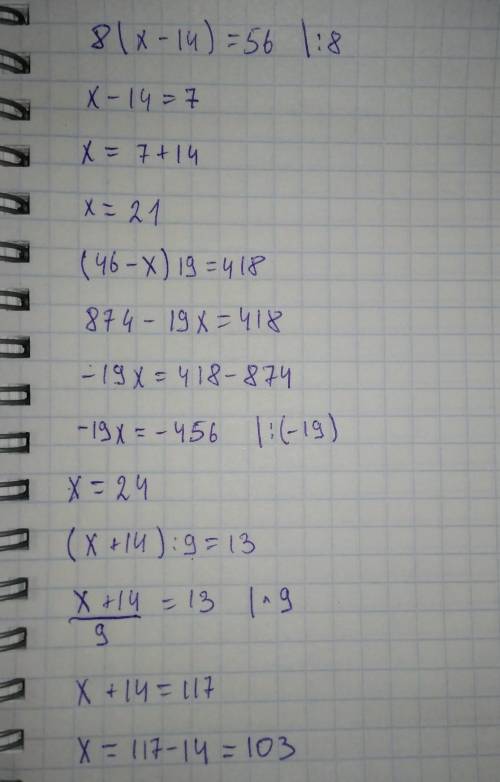 8(x-14)=56 |:8
x-14=7
x= 7+14
x= 21
(46-x)19=418
874-19x=418
-19x=418-874
-19x=-456 |:(-19)
x=24
(x+14):9=13
x+14 = 13 |·9
9
x+14=117
x=117-14=103